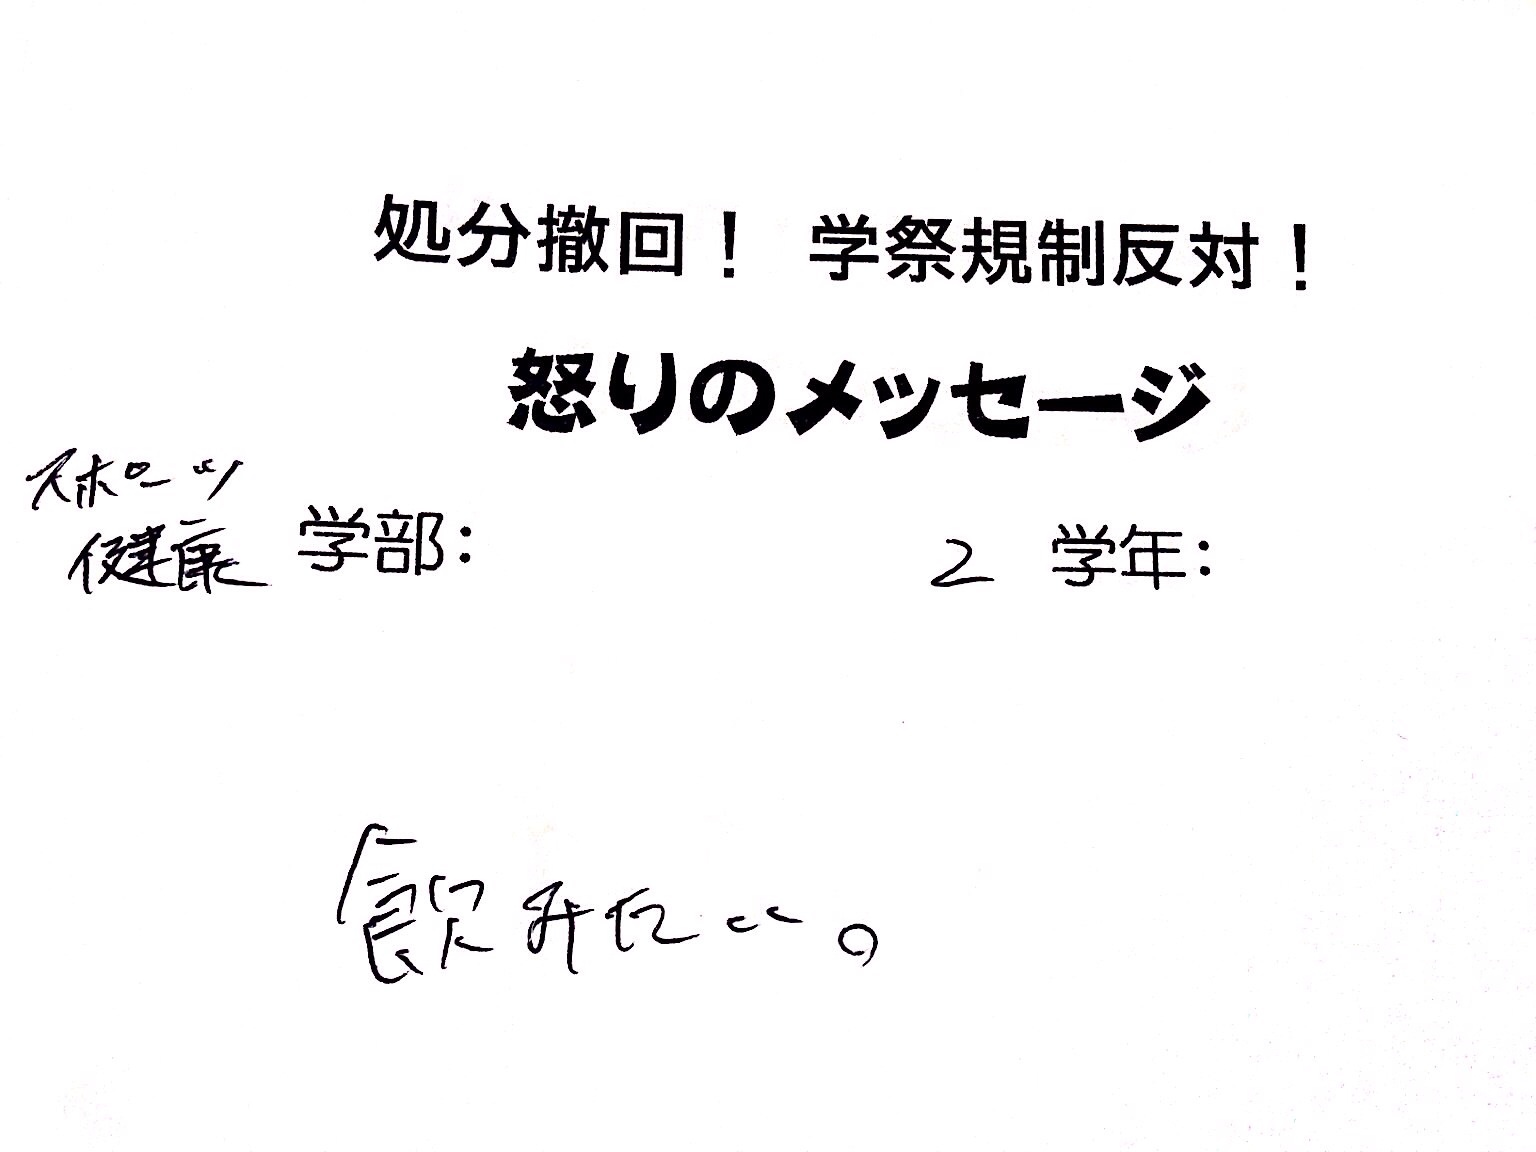 処分撤回！ 学祭規制反対！
怒りのメッセージ
スポーツ
健康 学部： 2 学年：
飲みたい。